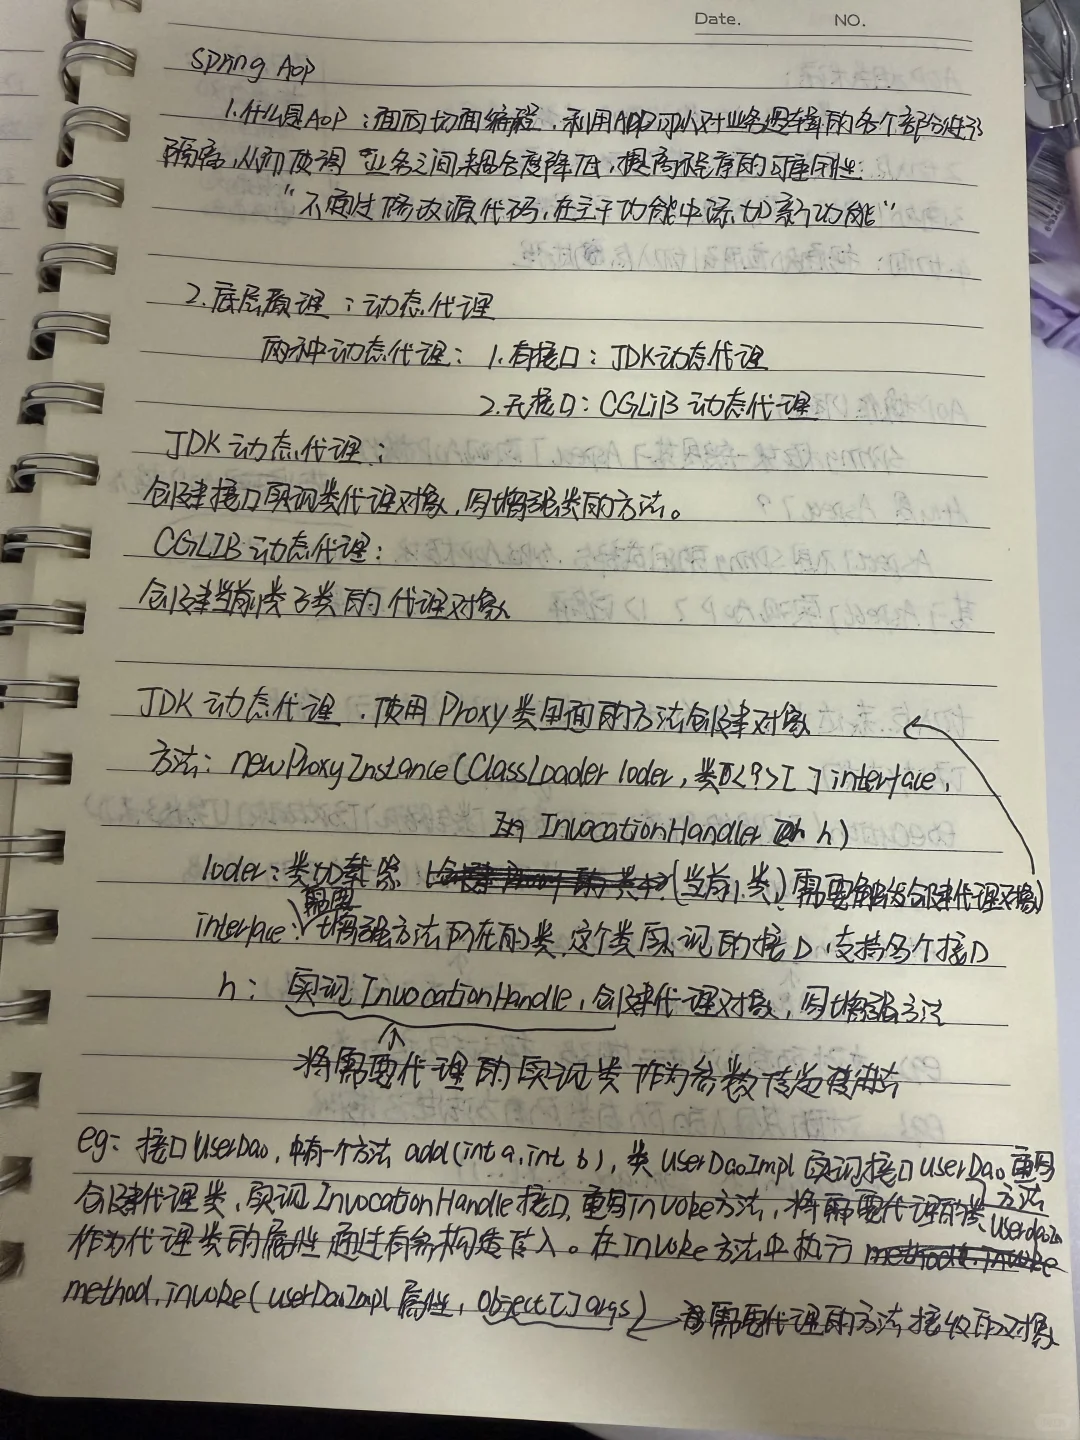 Date.    NO.
Spring AoP
1.什么是AoP：面向切面编程，利用AOP可以对业务逻辑的各个部分进行
隔离，从而使得 业务之间耦合度降低，提高程序的可重用性
"不通过修改源代码，在主干功能中添加新功能"
2.底层原理：动态代理
两种动态代理：1.有接口：JDK动态代理
2.无接口：CGLiB动态代理
JDK动态代理：
创建接口实现类代理对象，增强类的方法。
CGLIB动态代理：
创建当前类子类的代理对象
JDK动态代理，使用Proxy类里面的方法创建对象
方法：newProxyInstance(ClassLoader loder，类<?>[]interface，
InvocationHandler h)
loder：类加载器 (当前类) 需要 创建代理对象)
需要
interface：增强方法所在的类，这个类实现的接口，支持多个接口
h：实现InvocationHandle，创建代理对象，增强方法
将需要代理的实现类作为参数传进
eg：接口UserDao，中有一个方法add(int a,int b)，类UserDaoImpl实现接口UserDao，重写
方法
创建代理类，实现InvocationHandle接口，重写Invoke方法，将需要代理的类
作为代理类的属性通过有参构造传入。在Invoke方法中执行
method.invoke(userDaoImpl属性，object[]args) 需要代理的方法接收的对象